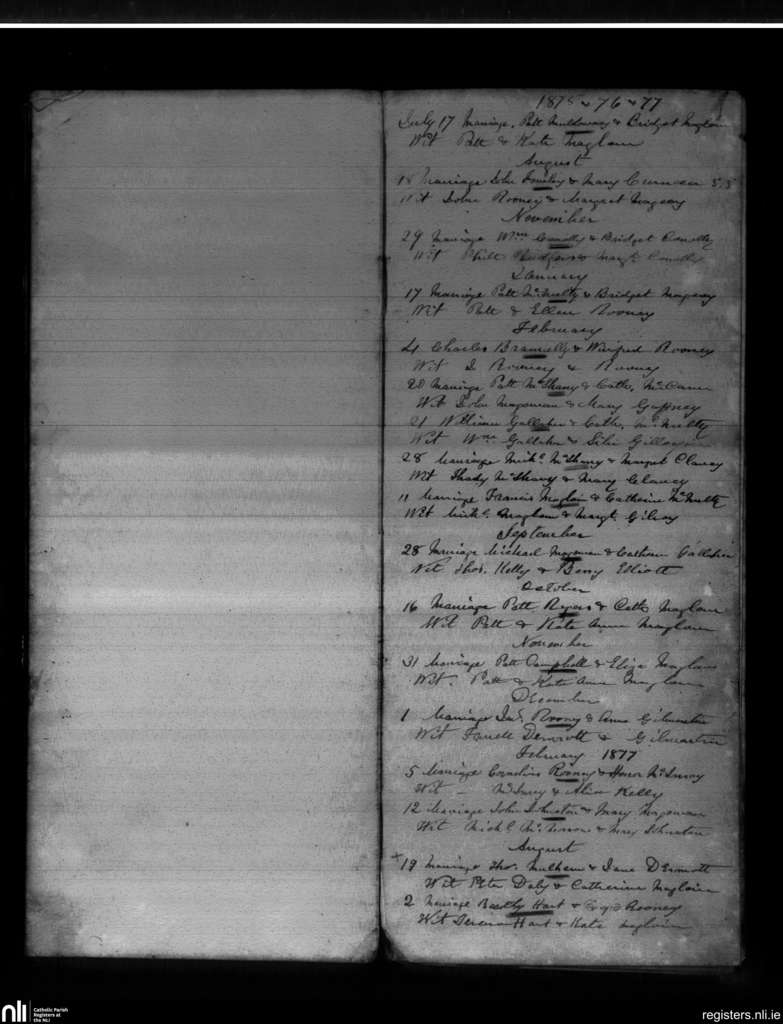 1875 & 76 & 77
July 17 Marriage, Patt Muldowney & Bridget Magloin
Wit Patt & Kate Magloin
August
18 Marriage John & Mary 5/5
Wit John Rooney & Margret Magowy
November
29 Marriage Wm Connolly & Bridget Connolly
Wit Phill & Margt. Connolly
January
17 Marriage Patt McNulty & Bridget
Wit Patt & Ellen Rooney
February
4 Charles Bramelly & Winifred Rooney
Wit J Rooney & Rooney
20 Marriage Patt McSharry & Cath. McCann
Wit John Magowan & Mary Gaffney
21 William Gallaher & Cath. McNulty
Wit Wm Gallaher &
28 Marriage Michl. McSharry & Margret Clancy
Wit Thady McSharry & Mary Clancy
11 Marriage Francis Magloin & Catherine McNulty
Wit Michl. Magloin & Margt. Gilroy
September
28 Marriage Michael Magowan & Catherine Gallaher
Wit Thos. Kelly & Elliott
October
16 Marriage Patt Rogers & Cath Magloin
Wit Patt & Kate Anne Magloin
November
31 Marriage Patt Campbell & Eliza Magloin
Wit. Patt & Kate Anne Magloin
December
1 Marriage Jas. Roony & Anne Gilmartin
Wit Farrell Dermott & Gilmartin
February 1877
5 Marriage Cornelius Rooney & Honor
Wit – & Alice Kelly
12 Marriage John Johnston & Mary Magowan
Wit Michl. & Mary Johnston
August
x 19 Marriage Thos. Mulhern & Jane Dermott
Wit Peter Daly & Catherine Magloin
2 Marriage Hart & Rooney
Wit Hart & Kate Magloin
nli
Catholic Parish
Registers at
the NLI
registers.nli.ie